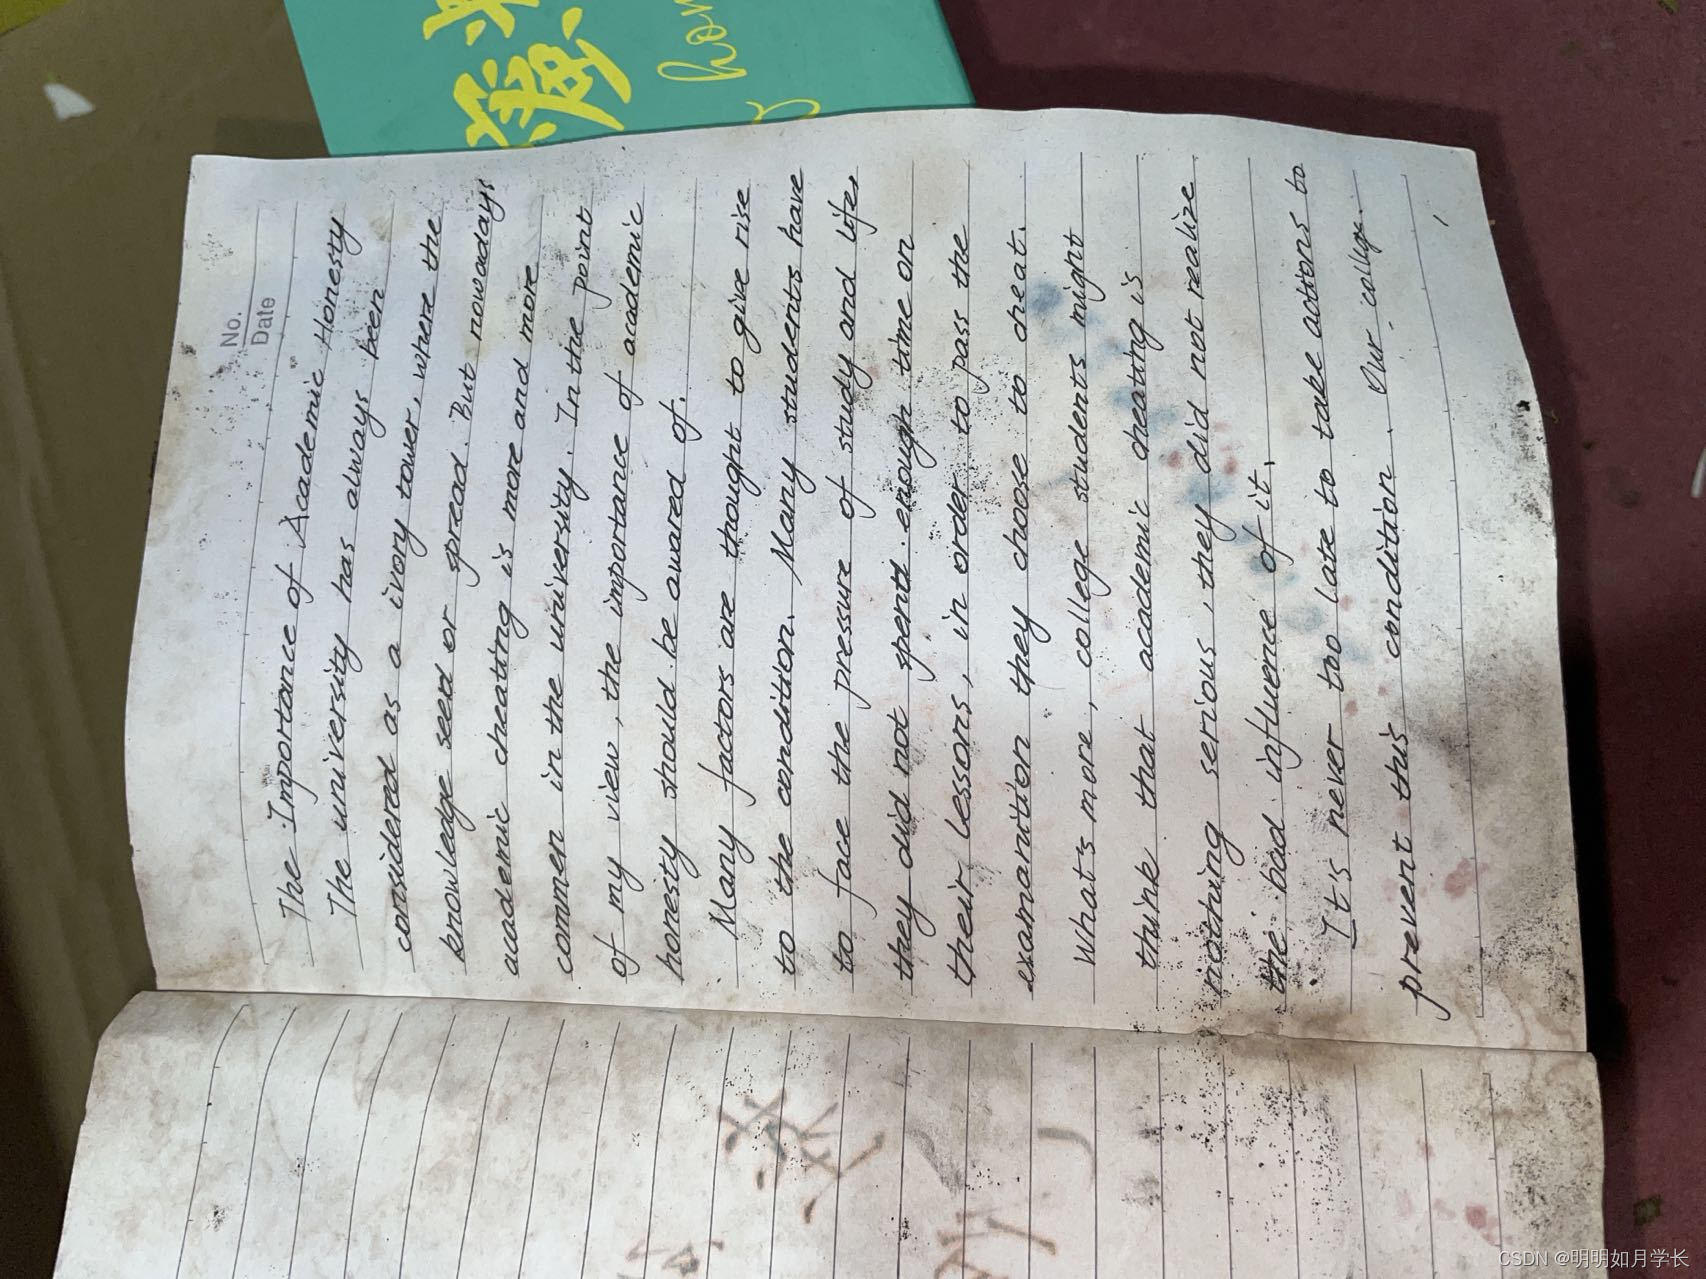 No.
Date
The Importance of Academic Honesty
The university has always been
considered as a ivory tower, where the
knowledge seed or spread. But nowadays
academic cheatting is more and more
commen in the university. In the point
of my view, the importance of academic
honesty should be awared of.
Many factors are thought to give rise
to the condition. Many students have
to face the pressure of study and life,
they did not spent enough time on
their lessons, in order to pass the
examanition they choose to cheat.
What's more, college students might
think that academic cheating is
nothing serious, they did not realize
the bad influence of it.
It's never too late to take actions to
prevent this condition. Our college.
CSDN @明明如月学长